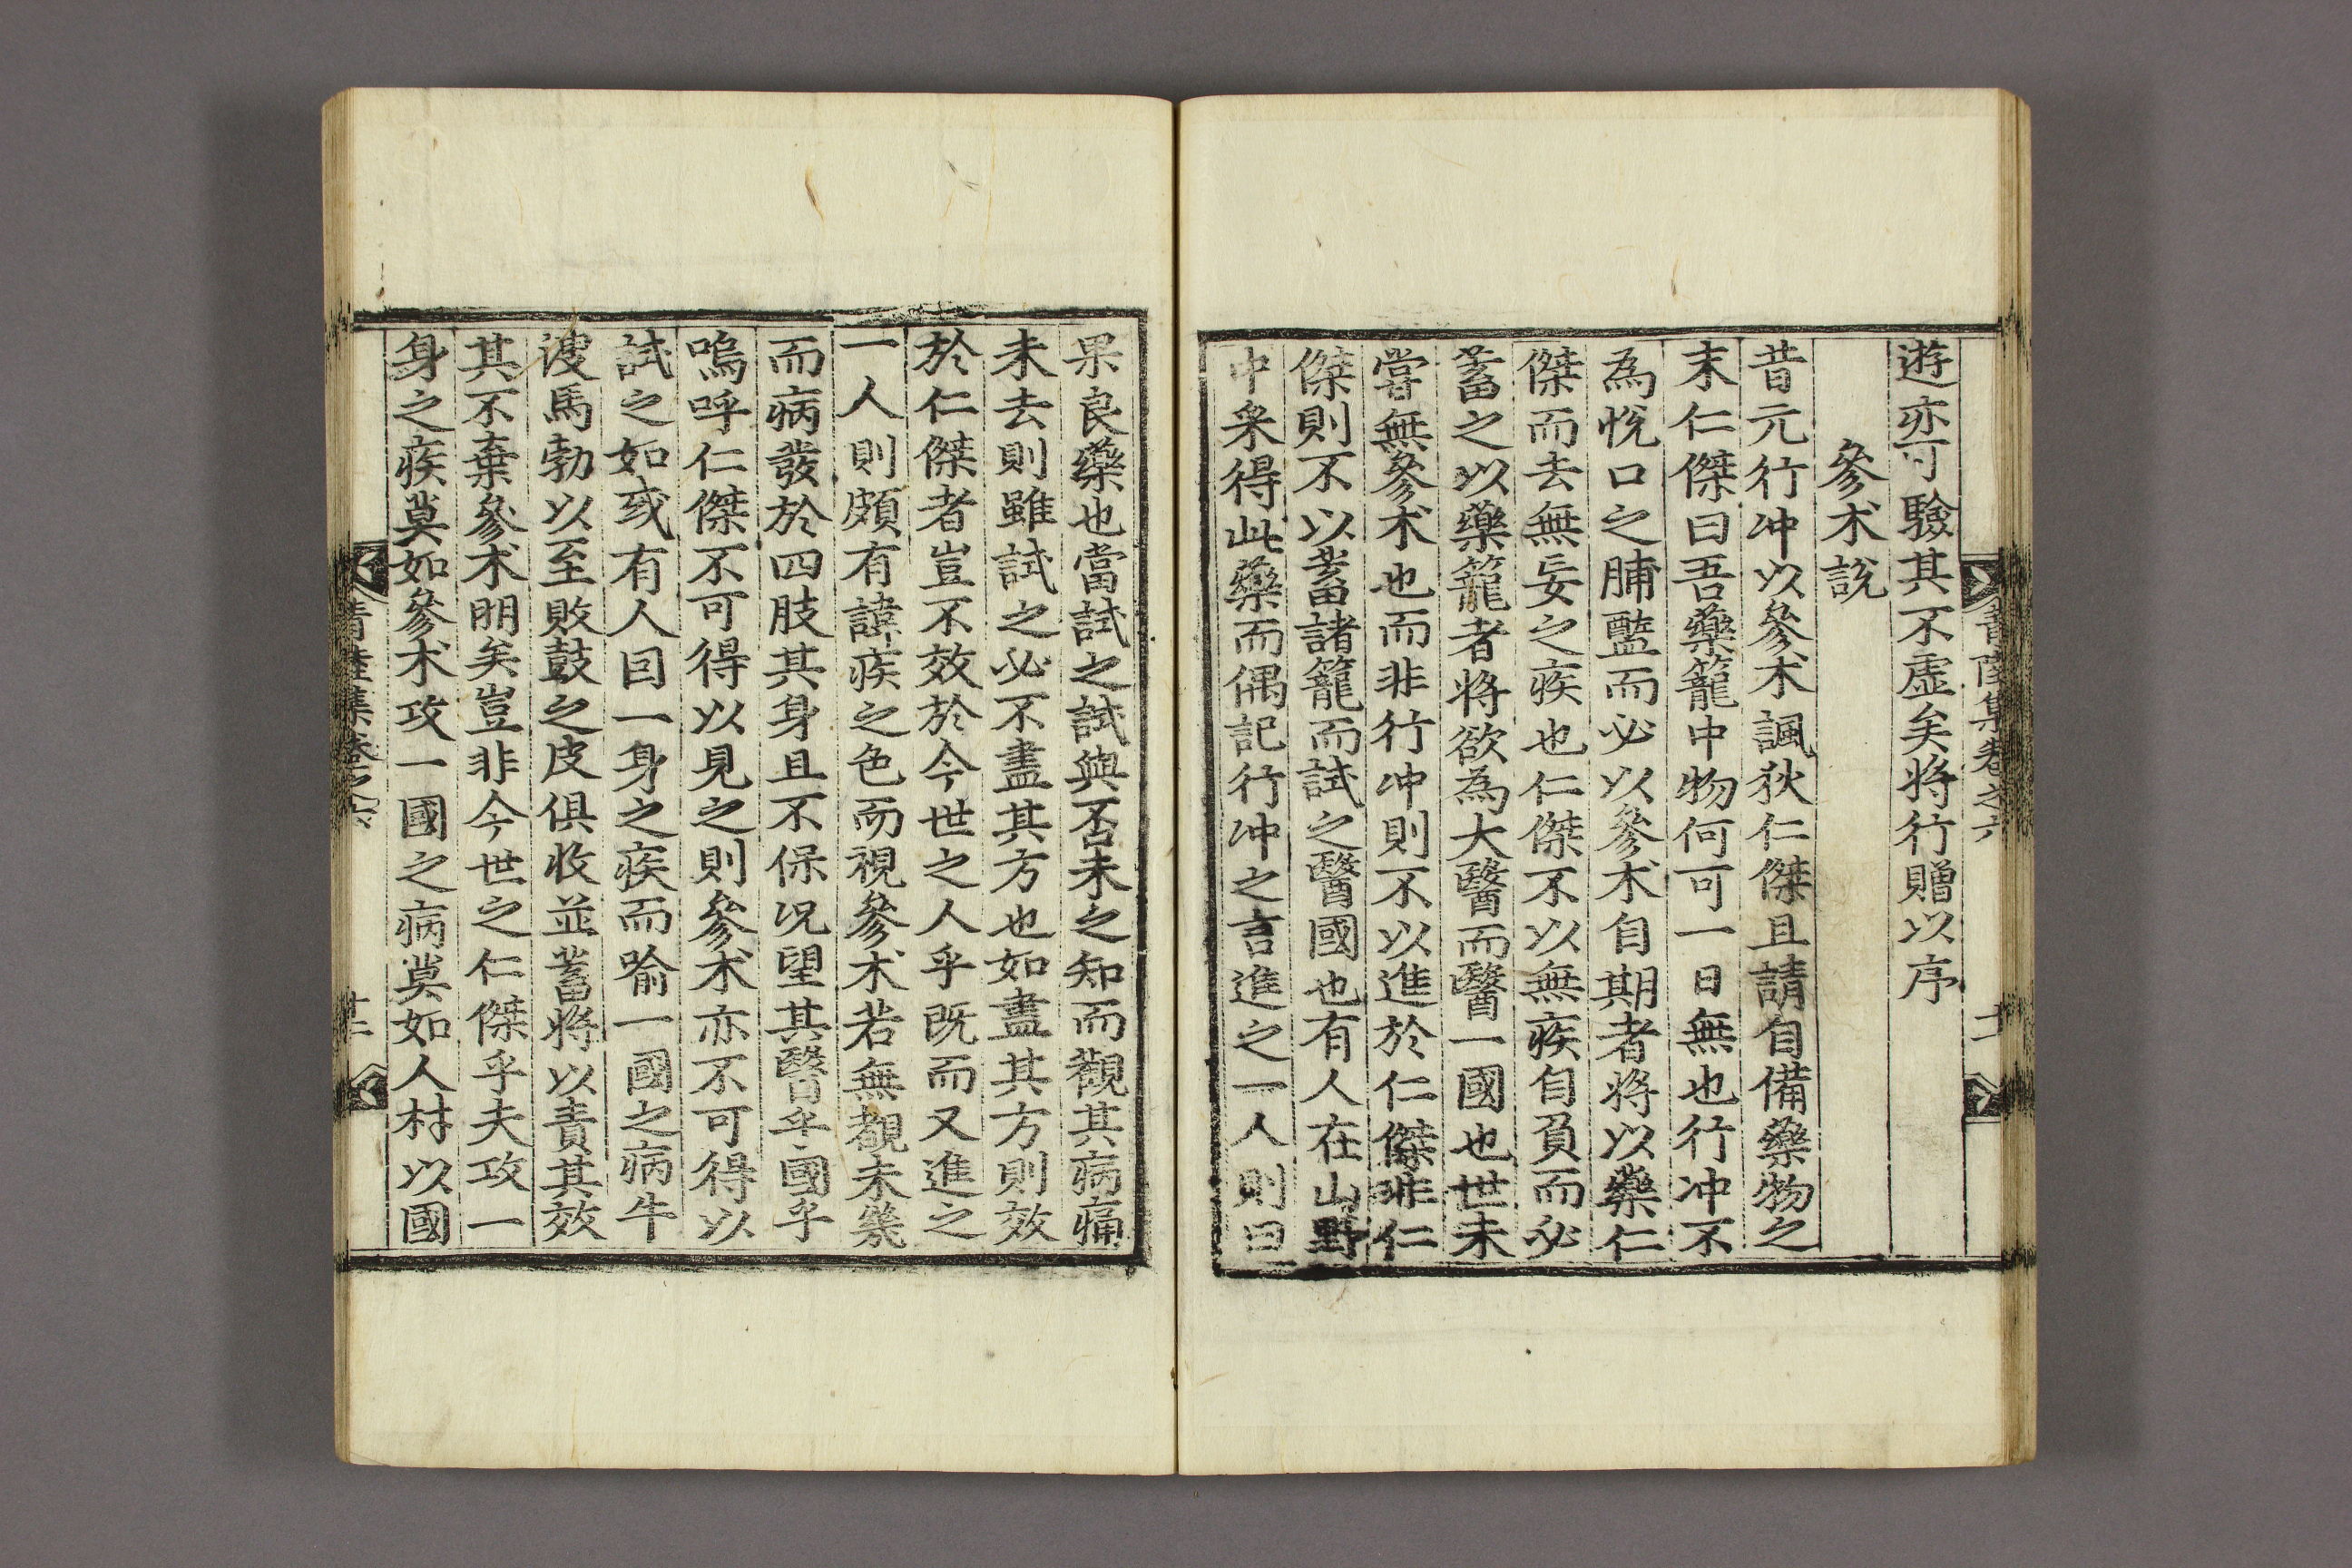 遊亦可驗其不虛矣將行贈以序
參朮說
昔元行冲以參朮諷狄仁傑且請自備藥物之
末仁傑曰吾藥籠中物何可一日無也行冲不
為悅口之脯醢而必以參朮自期者將以藥仁
傑而去無妄之疾也仁傑不以無疾自負而必
蓄之以藥籠者將欲為大醫而醫一國也世未
嘗無參朮也而非行冲則不以進於仁傑非仁
傑則不以蓄諸籠而試之醫國也有人在山野
中采得此藥而偶記行冲之言進之一人則曰
果良藥也當試之試與否未之知而觀其病痛
未去則雖試之必不盡其方也如盡其方則效
於仁傑者豈不效於今世之人乎既而又進之
一人則頗有諱疾之色而視參朮若無覩未幾
而病發於四肢其身且不保況望其醫乎國乎
嗚呼仁傑不可得以見之則參朮亦不可得以
試之如或有人因一身之疾而喻一國之病牛
溲馬勃以至敗鼓之皮俱收並蓄將以責其效
其不棄參朮明矣豈非今世之仁傑乎夫攻一
身之疾莫如參朮攻一國之病莫如人材以國
青陸集卷之六